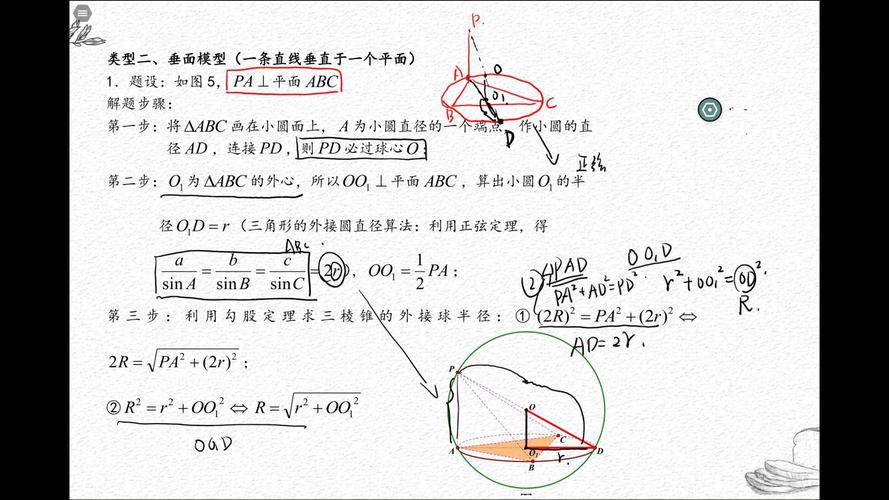 类型二、垂面模型（一条直线垂直于一个平面）
1．题设：如图5，PA⊥平面ABC
解题步骤：
第一步：将ΔABC画在小圆面上，A为小圆直径的一个端点，作小圆的直
径AD，连接PD，则PD必过球心O；
第二步：O₁为ΔABC的外心，所以OO₁⊥平面ABC，算出小圆O₁的半
径O₁D=r（三角形的外接圆直径算法：利用正弦定理，得
ABC
a/sin A = b/sin B = c/sin C = 2r），OO₁=1/2 PA；
第三步：利用勾股定理求三棱锥的外接球半径：①(2R)²=PA²+(2r)²⇔
2R=√(PA²+(2r)²)；
②R²=r²+OO₁²⇔R=√(r²+OO₁²)
OO₁D
P.
A
O
O₁
B
C
D
正弦
② ΔPAD
PA²+AD²=PD²
OO₁D
r²+OO₁²=OD²
R.
AD=2r.
P
O
C
A
O₁
D
B
r.